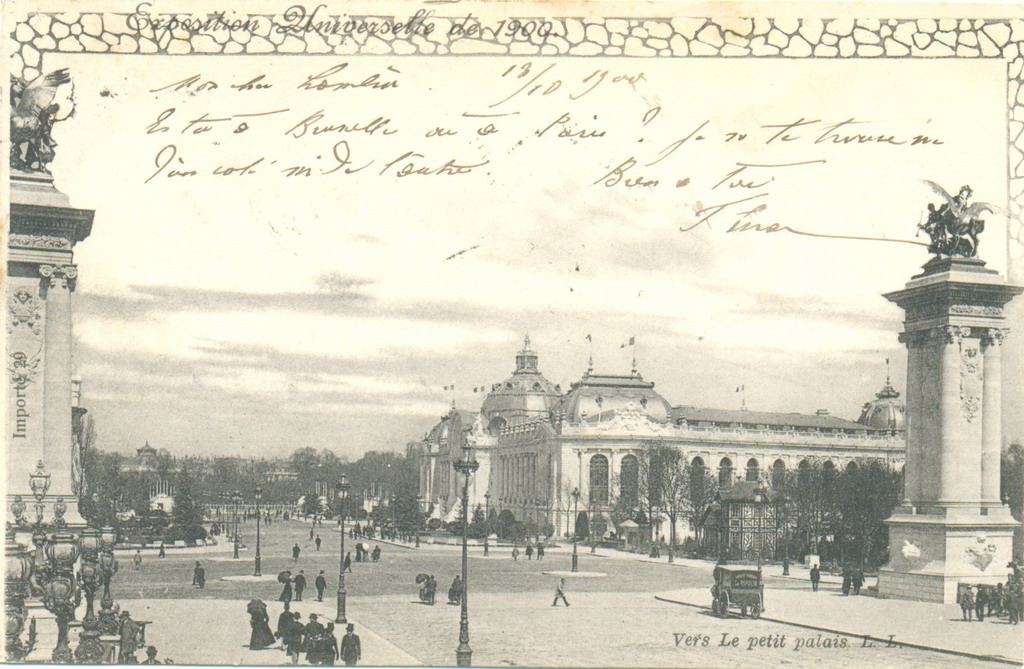 Exposition Universelle de 1900.
Mon cher 13/10 1900
Es tu à Bruxelle ou à Paris? Je ne te trouve ni
d'un coté ni de l'autre. Bien à Toi
Importé 29
Vers Le petit palais L. L.